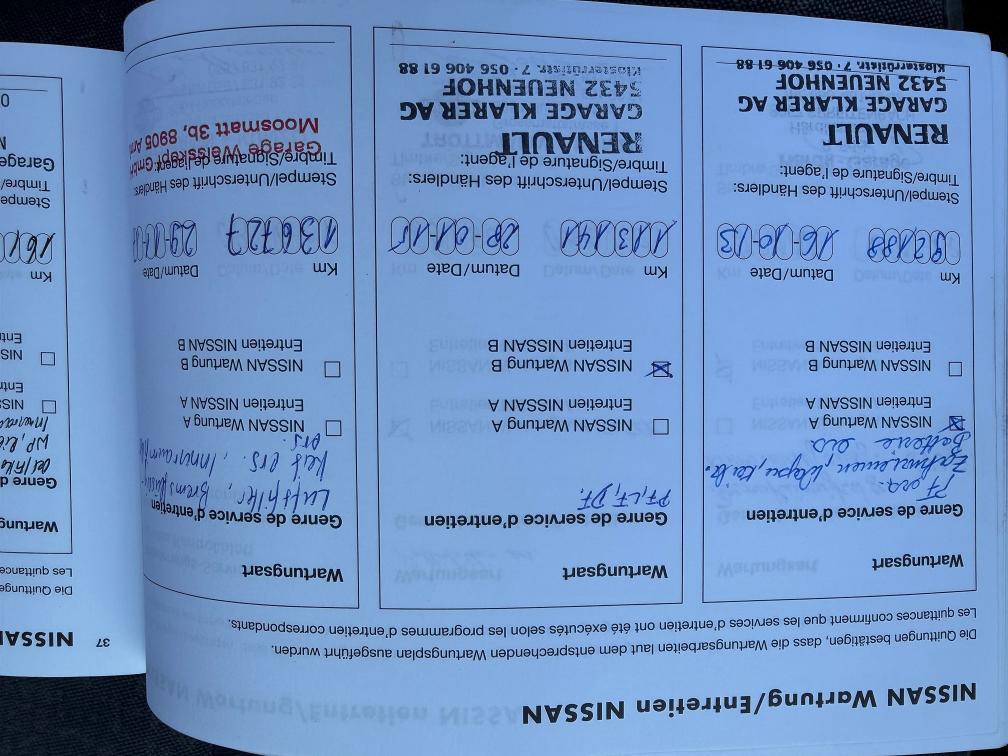 NISSAN Wartung/Entretien NISSAN
Die Quittungen bestätigen, dass die Wartungsarbeiten laut dem entsprechenden Wartungsplan ausgeführt wurden.
Les quittances confirment que les services d'entretien ont été exécutés selon les programmes d'entretien correspondants.
Wartungsart
Genre de service d'entretien
PF ers.
Zahnriemen, Wapu,
Batterie ers
NISSAN Wartung A
Entretien NISSAN A
NISSAN Wartung B
Entretien NISSAN B
Km
Datum/Date
92188
16-10-13
Stempel/Unterschrift des Händlers:
Timbre/Signature de l'agent:
RENAULT
GARAGE KLARER AG
5432 NEUENHOF
Klosterrütistr. 7 · 056 406 61 88
Wartungsart
Genre de service d'entretien
PF, LF, DF.
NISSAN Wartung A
Entretien NISSAN A
NISSAN Wartung B
Entretien NISSAN B
Km
Datum/Date
113141
28-01-15
Stempel/Unterschrift des Händlers:
Timbre/Signature de l'agent:
RENAULT
GARAGE KLARER AG
5432 NEUENHOF
Klosterrütistr. 7 · 056 406 61 88
Wartungsart
Genre de service d'entretien
Luftfilter, Bremsflüssig-
keit ers, Innenraumfilter
ers.
NISSAN Wartung A
Entretien NISSAN A
NISSAN Wartung B
Entretien NISSAN B
Km
Datum/Date
136727
29-11-
Stempel/Unterschrift des Händlers:
Timbre/Signature de l'agent:
Garage Weisskopf GmbH
Moosmatt 3b, 8905 Arn
37
NISSAN
Die Quittunge
Les quittance
Wartung
Genre d
NISS
Entre
NIS
Entr
Km
Stempe
Timbre
Garage